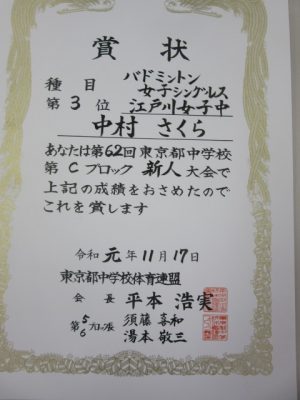 賞状
種目 バドミントン
女子シングルス
第3位 江戸川女子中
中村 さくら
あなたは第62回東京都中学校
第Cブロック 新人 大会で
上記の成績をおさめたので
これを賞します
令和 元年11月17日
東京都中学校体育連盟
会長 平本 浩実
第5ブロック長 須藤 喜和
6 湯本 敬三